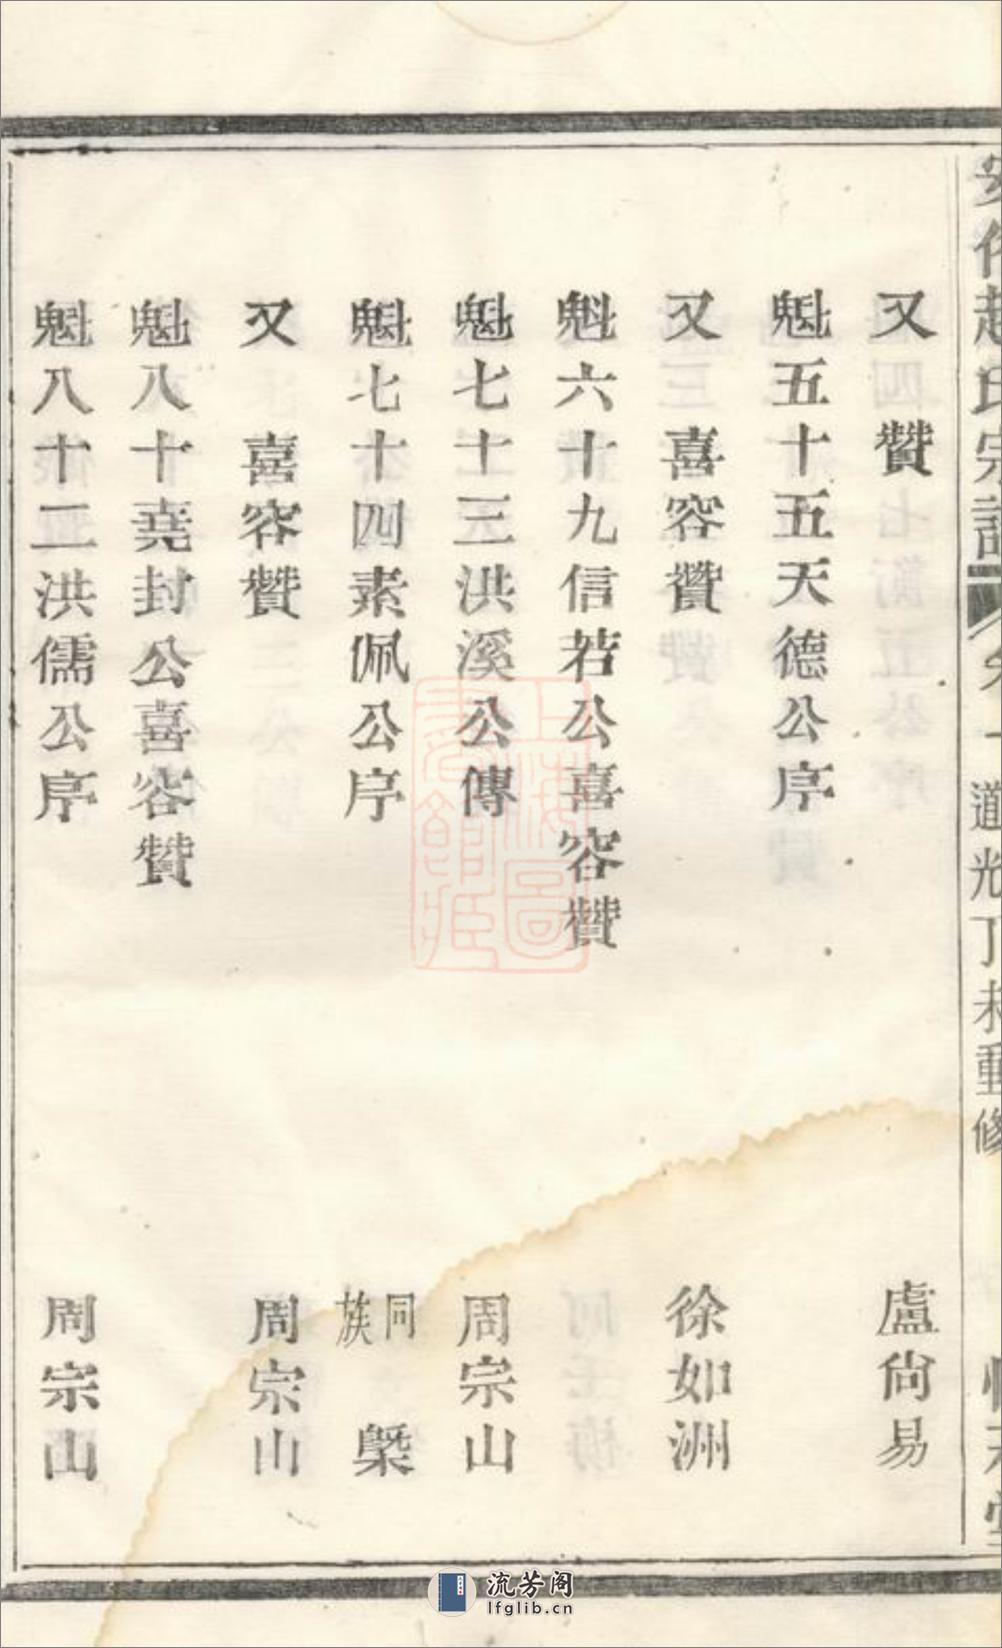 趙氏宗譜 卷一 道光丁未重修
又 贊 盧尙易
魁五十五天德公序
又 喜容贊 徐如洲
魁六十九信若公喜容贊
魁七十三洪溪公傳 周宗山
魁七十四素佩公序 同族 槩
又 喜容贊 周宗山
魁八十堯封公喜容贊
魁八十二洪儒公序 周宗山
上海圖書館藏
流芳阁
lfglib.cn